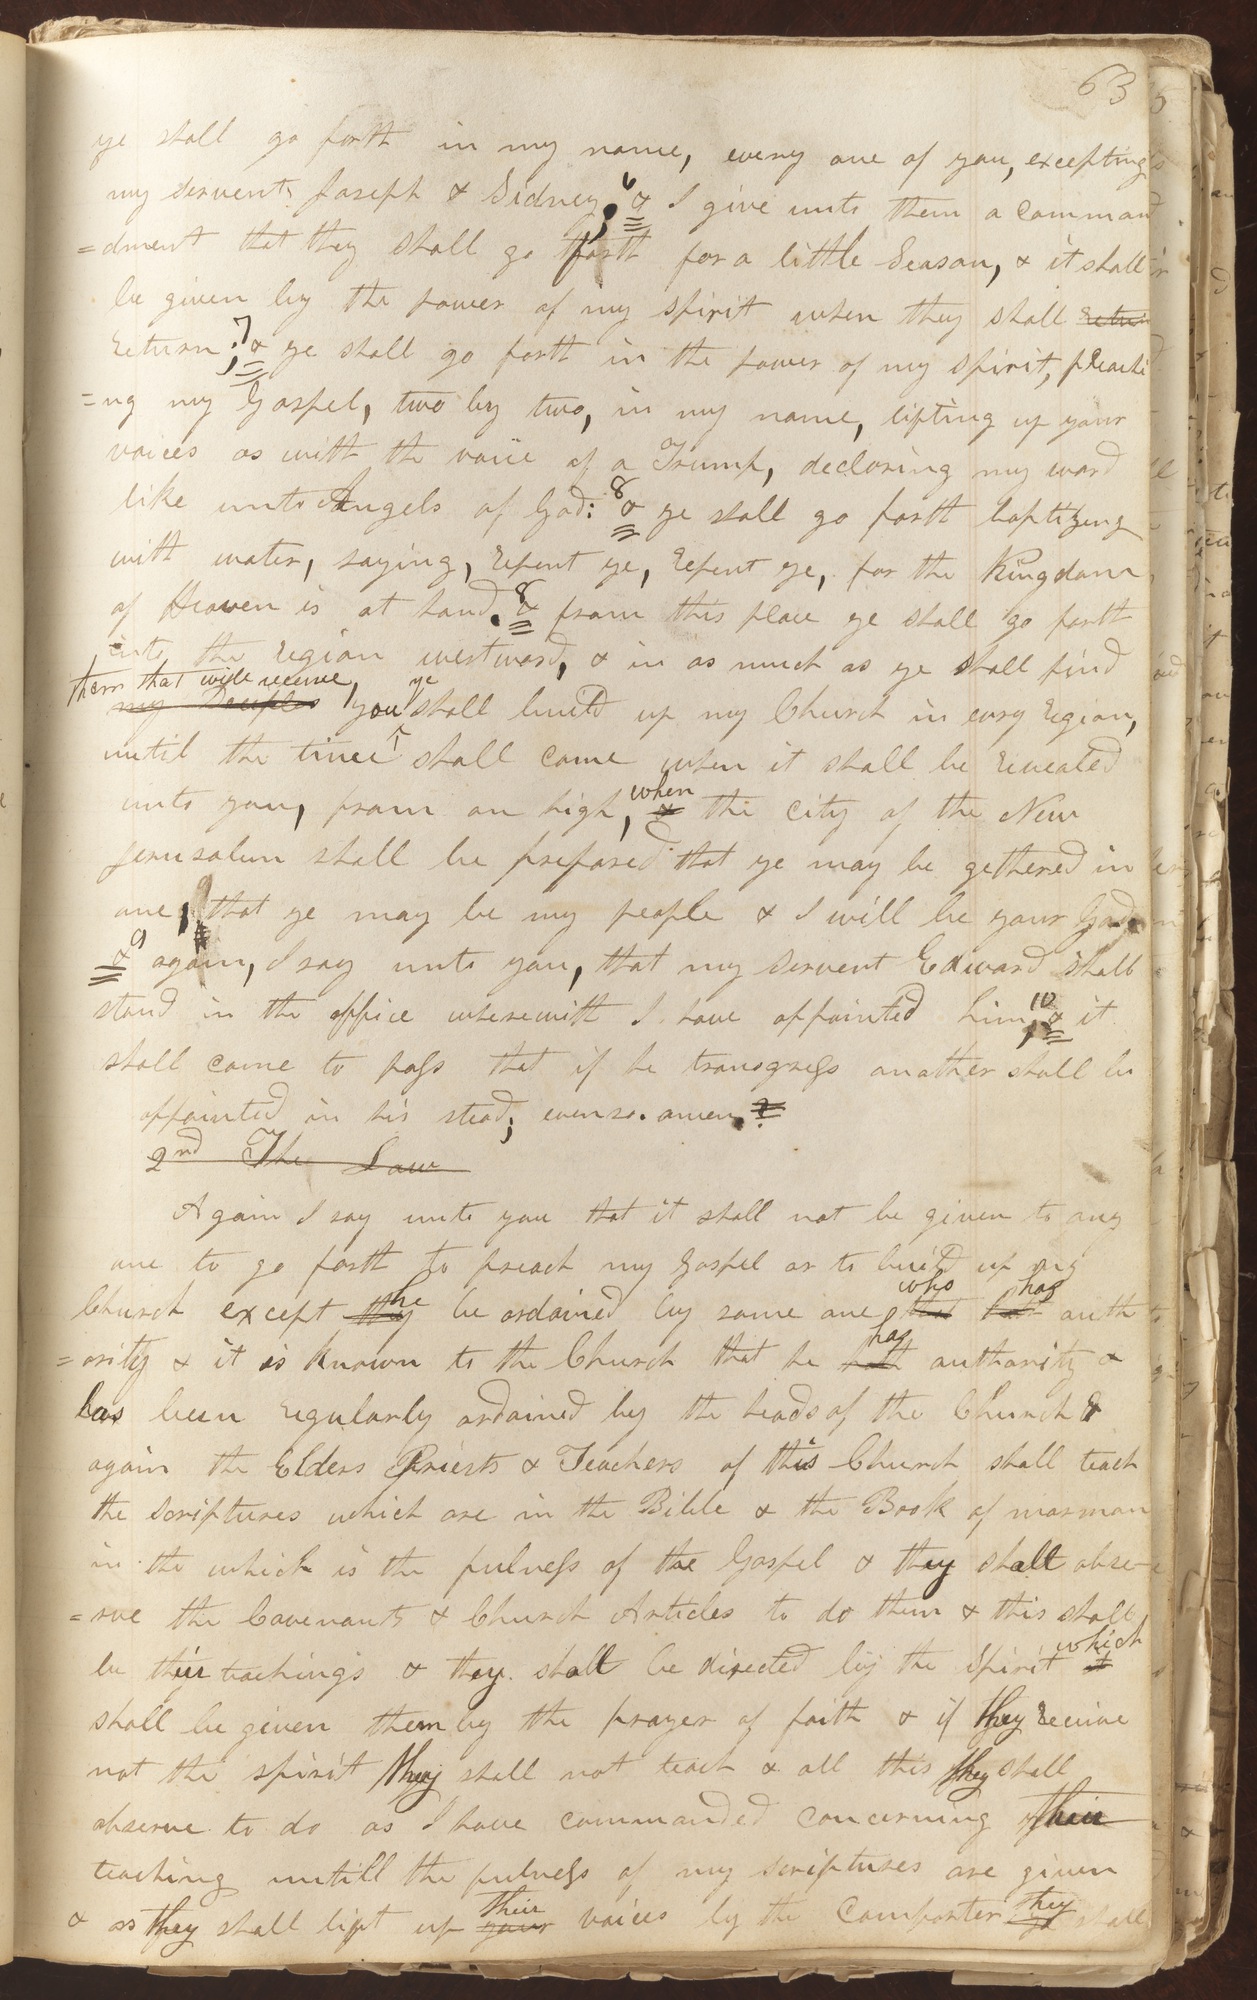 63
ye shall go forth in my name, every one of you, excepting
my servents Joseph & Sidney; 6 & I give unto them a comman
=dment that they shall go forth for a little Season, & it shall
be given by the power of my spirit when they shall retur
return; 7 & ye shall go forth in the power of my spirit, preachi
=ng my Gospel, two by two, in my name, lifting up your
voices as with the voice of a Trump, declaring my word
like unto Angels of God: 8 & ye shall go forth baptizing
with water, saying, repent ye, repent ye, for the Kingdom
of Heaven is at hand. 8 & from this place ye shall go forth
into the region westward, & in as much as ye shall find
them that will receive, ye
my Deciples you shall build up my Church in evry region,
until the time shall come when it shall be revealed
when
unto you, from on high, & the city of the New
Jerusalem shall be prepared that ye may be gethered in
one, that ye may be my people & I will be your God
& 9 again, I say unto you, that my servent Edward shall
stand in the office wherewith I have appointed him; 10 & it
shall come to pass that if he transgress another shall be
appointed in his stead; even so. amen.
2nd The Law
Again I say unto you that it shall not be given to any
one to go forth to preach my Gospel or to build up my
he who has
Church except they be ordained by some one that hath auth
has
=ority & it is known to the Church that he hath authority &
has been regularly ordained by the heads of the Church &
again the Elders Priests & Teachers of this Church shall teach
the scriptures which are in the Bible & the Book of mormon
in the which is the fulness of the Gospel & they shall obse-
=rve the Covenants & Church Articles to do them & this shall
which
be their teachings & they shall be directed by the spirit it
shall be given them by the prayer of faith & if they receive
not the spirit they shall not teach & all this they shall
observe to do as I have commanded concerning their
teaching untill the fulness of my scriptures are given
their they
& as they shall lift up your voices by the Comforter ye shall